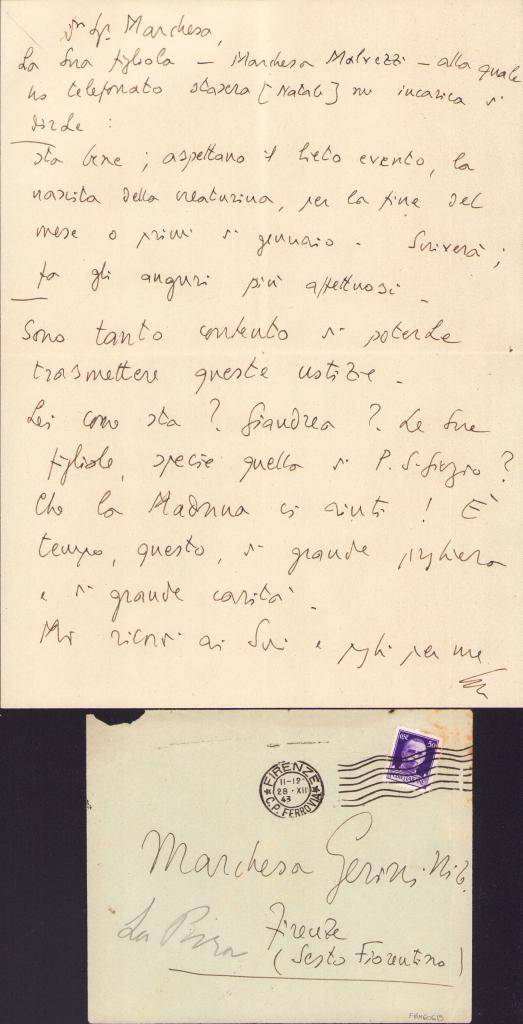 Marchesa,
La Sua figliola – Marchesa Malvezzi – alla quale
ho telefonato stasera [Natale] mi incarica di
dirLe :
sta bene ; aspettano il lieto evento, la
nascita della creaturina, per la fine del
mese o primi di gennaio. Scriverà ;
fa gli auguri più affettuosi.
Sono tanto contento di poterLe
trasmettere queste notizie.
Lei come sta ? Giandrea ? Le Sue
figliole, specie quella di P. S. Giorgio ?
Che la Madonna ci aiuti ! È
tempo, questo, di grande preghiera
e di grande carità.
Mi ricordi ai Suoi e preghi per me.
FIRENZE
11-12
28 · XII
43
C.P. FERROVIA
50
Marchesa Gerini
Firenze
(Sesto Fiorentino)
La Pira